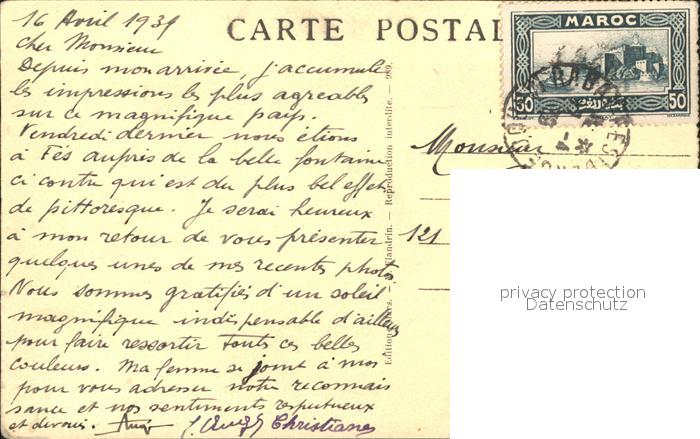 16 Avril 193
CARTE POSTAL
MAROC
50 50
RABAT
Cher Monsieur
Depuis mon arrivée, j'accumule
les impressions les plus agreables
sur ce magnifique pays.
Vendredi dernier nous étions
à Fès auprès de la belle fontaine
ci contre qui est du plus bel effet
de pittoresque. Je serai heureux
à mon retour de vous présenter
quelques unes de mes recentes photos.
Nous sommes gratifiés d'un soleil
magnifique indispensable d'ailleurs
pour faire ressortir touts ces belles
couleurs. Ma femme se joint à moi
pour vous adresser notre reconnais
sance et nos sentiments respectueux
et devoués.
Christiane
Editions
Flandrin. — Reproduction interdite. — 989.
Monsieur
121
privacy protection
Datenschutz